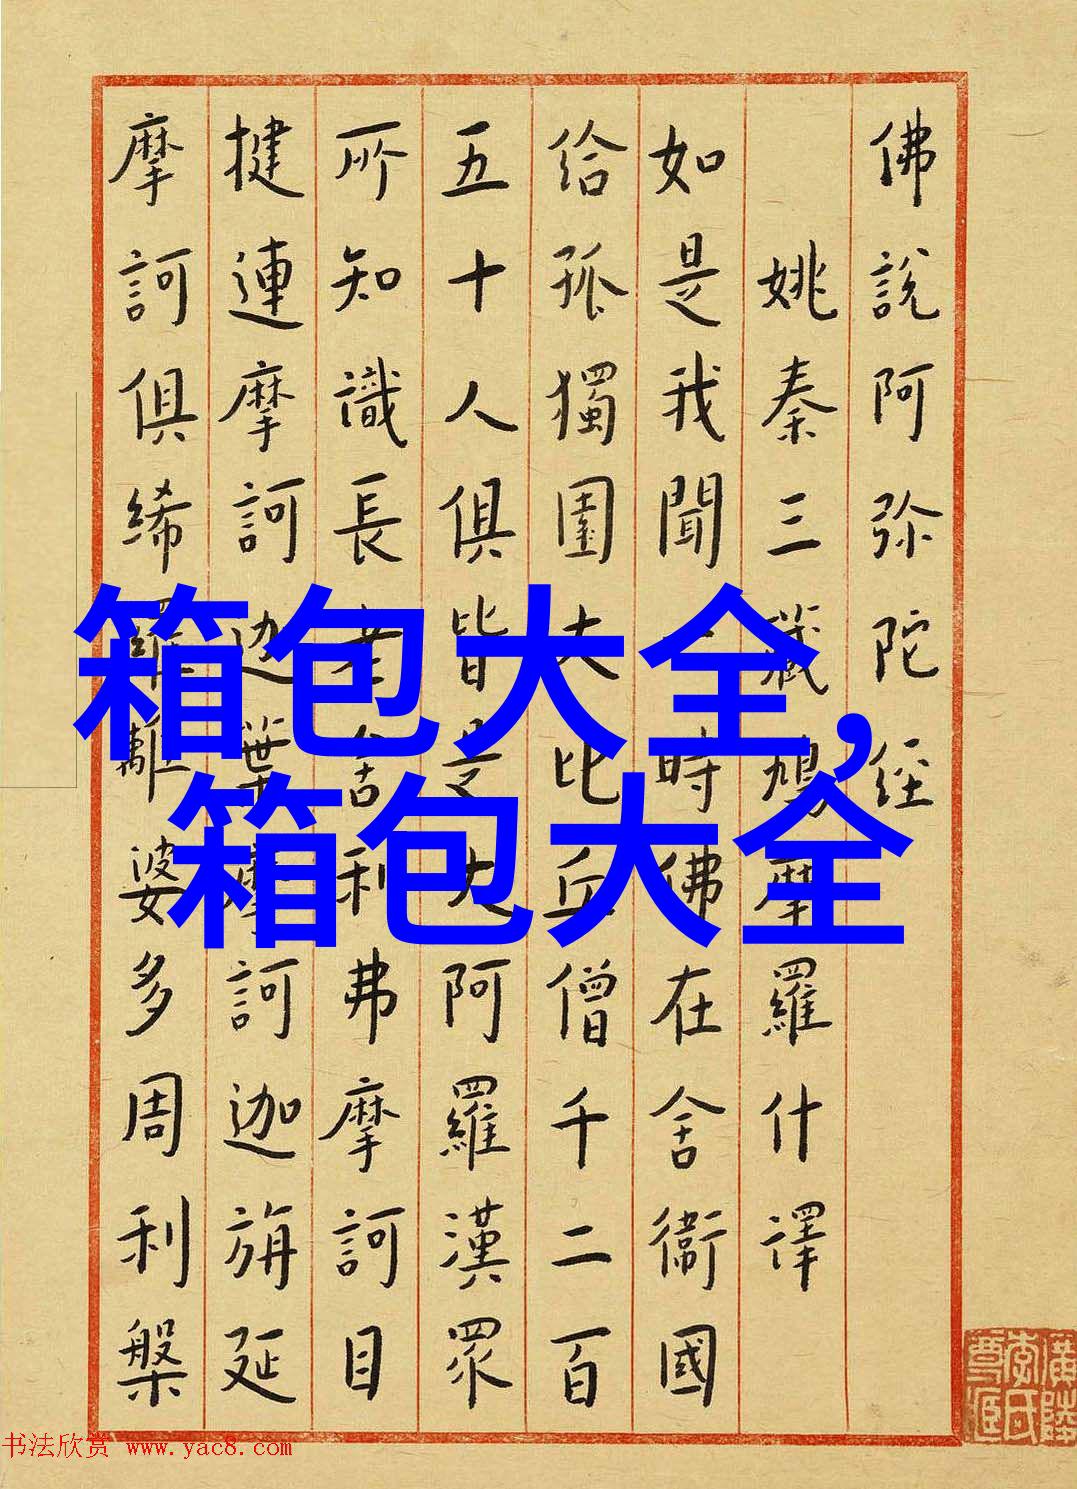 佛說阿弥陀經
姚秦三藏鳩摩羅什譯
如是我聞一時佛在舍衞國
給孤獨園大比丘僧千二百
五十人俱皆是大阿羅漢眾
所知識長老舍利弗摩訶目
揵連摩訶迦葉摩訶迦旃延
摩訶俱絺羅離婆多周利槃
箱包大全,
箱包大全
书法欣赏 www.yac8.com